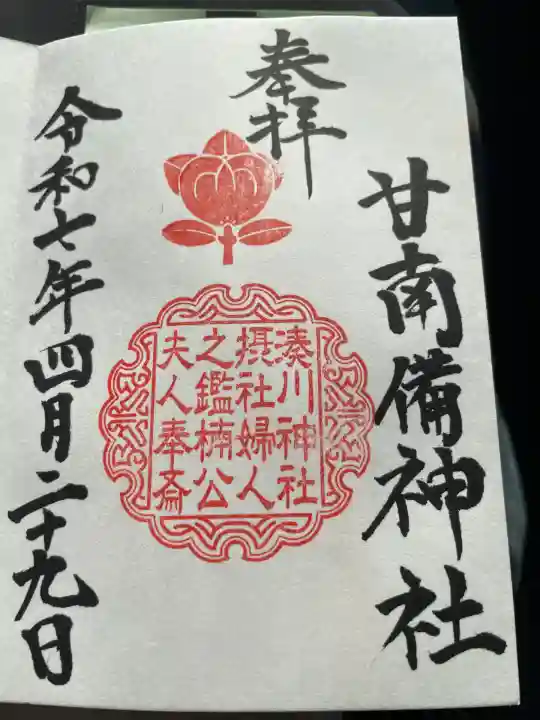 奉拝
甘南備神社
湊川神社
摂社婦人
之鑑楠公
夫人奉斎
令和七年四月二十九日